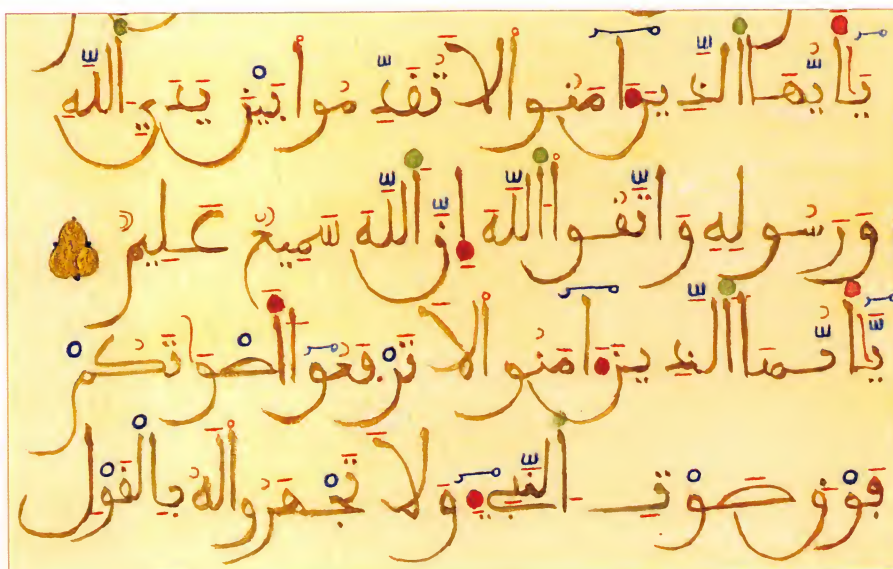 يَٰأَيُّهَا اَ۬لذِينَ ءَامَنُواْ لَا تُقَدِّمُواْ بَيْنَ يَدَيِ اِ۬للَّهِ
وَرَسُولِهِۦ وَاتَّقُواْ اُ۬للَّهَ إِنَّ اَ۬للَّهَ سَمِيعٌ عَلِيمٞ
يَٰأَيُّهَا اَ۬لذِينَ ءَامَنُواْ لَا تَرْفَعُواْ أَصْوَٰتَكُمْ
فَوْقَ صَوْتِ اِ۬لنَّبِيٓءِ وَلَا تَجْهَرُواْ لَهُۥ بِالْقَوْلِ